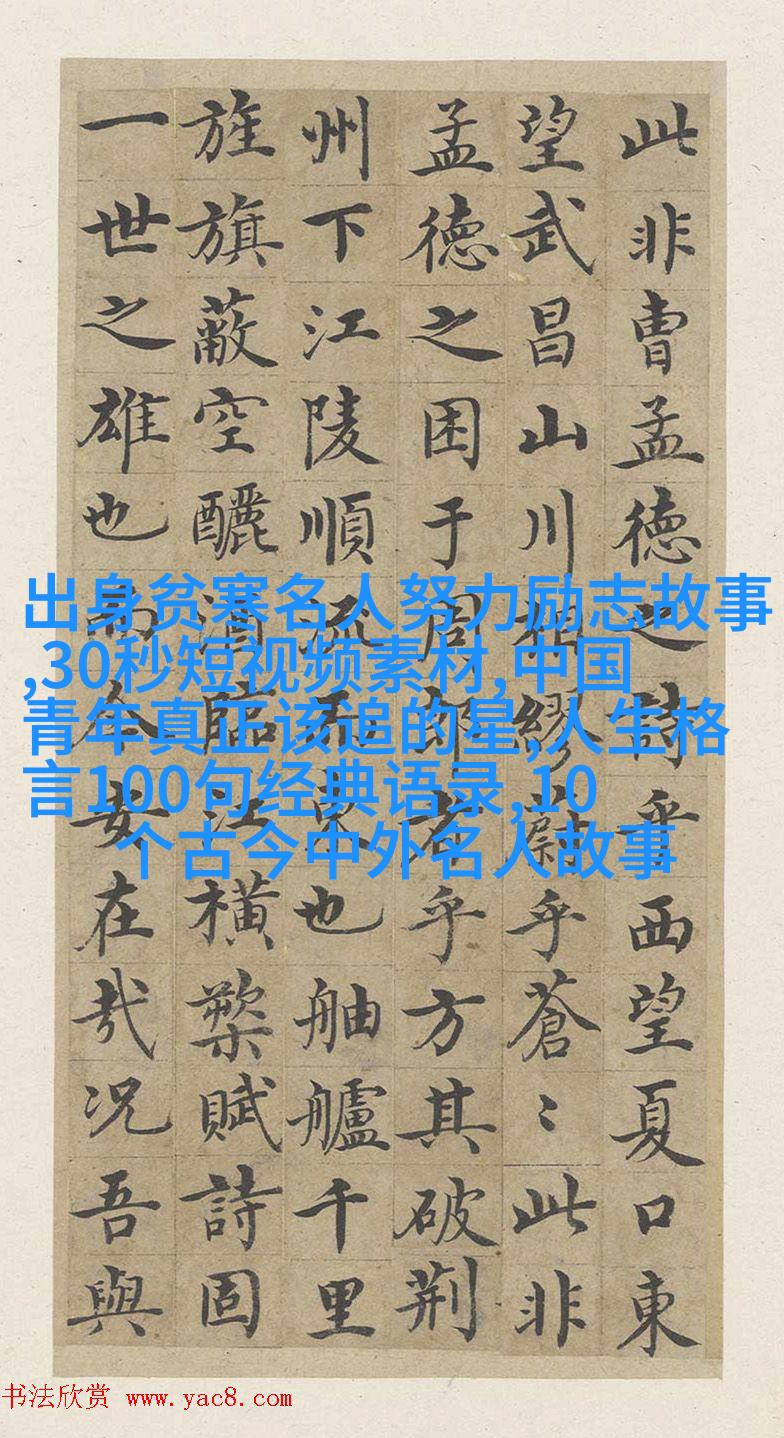 此非曹孟德之詩乎西望夏口東
望武昌山川相繆蔚乎蒼〻此非
孟德之困于周郎者乎方其破荆
州下江陵順流而東也舳艫千里
旌旗蔽空釃酒臨江橫槊賦詩固
一世之雄也而今安在哉况吾與
出身贫寒名人努力励志故事
,30秒短视频素材,中国
青年真正该追的星,人生格
言100句经典语录,10
个古今中外名人故事
书法欣赏 www.yac8.com